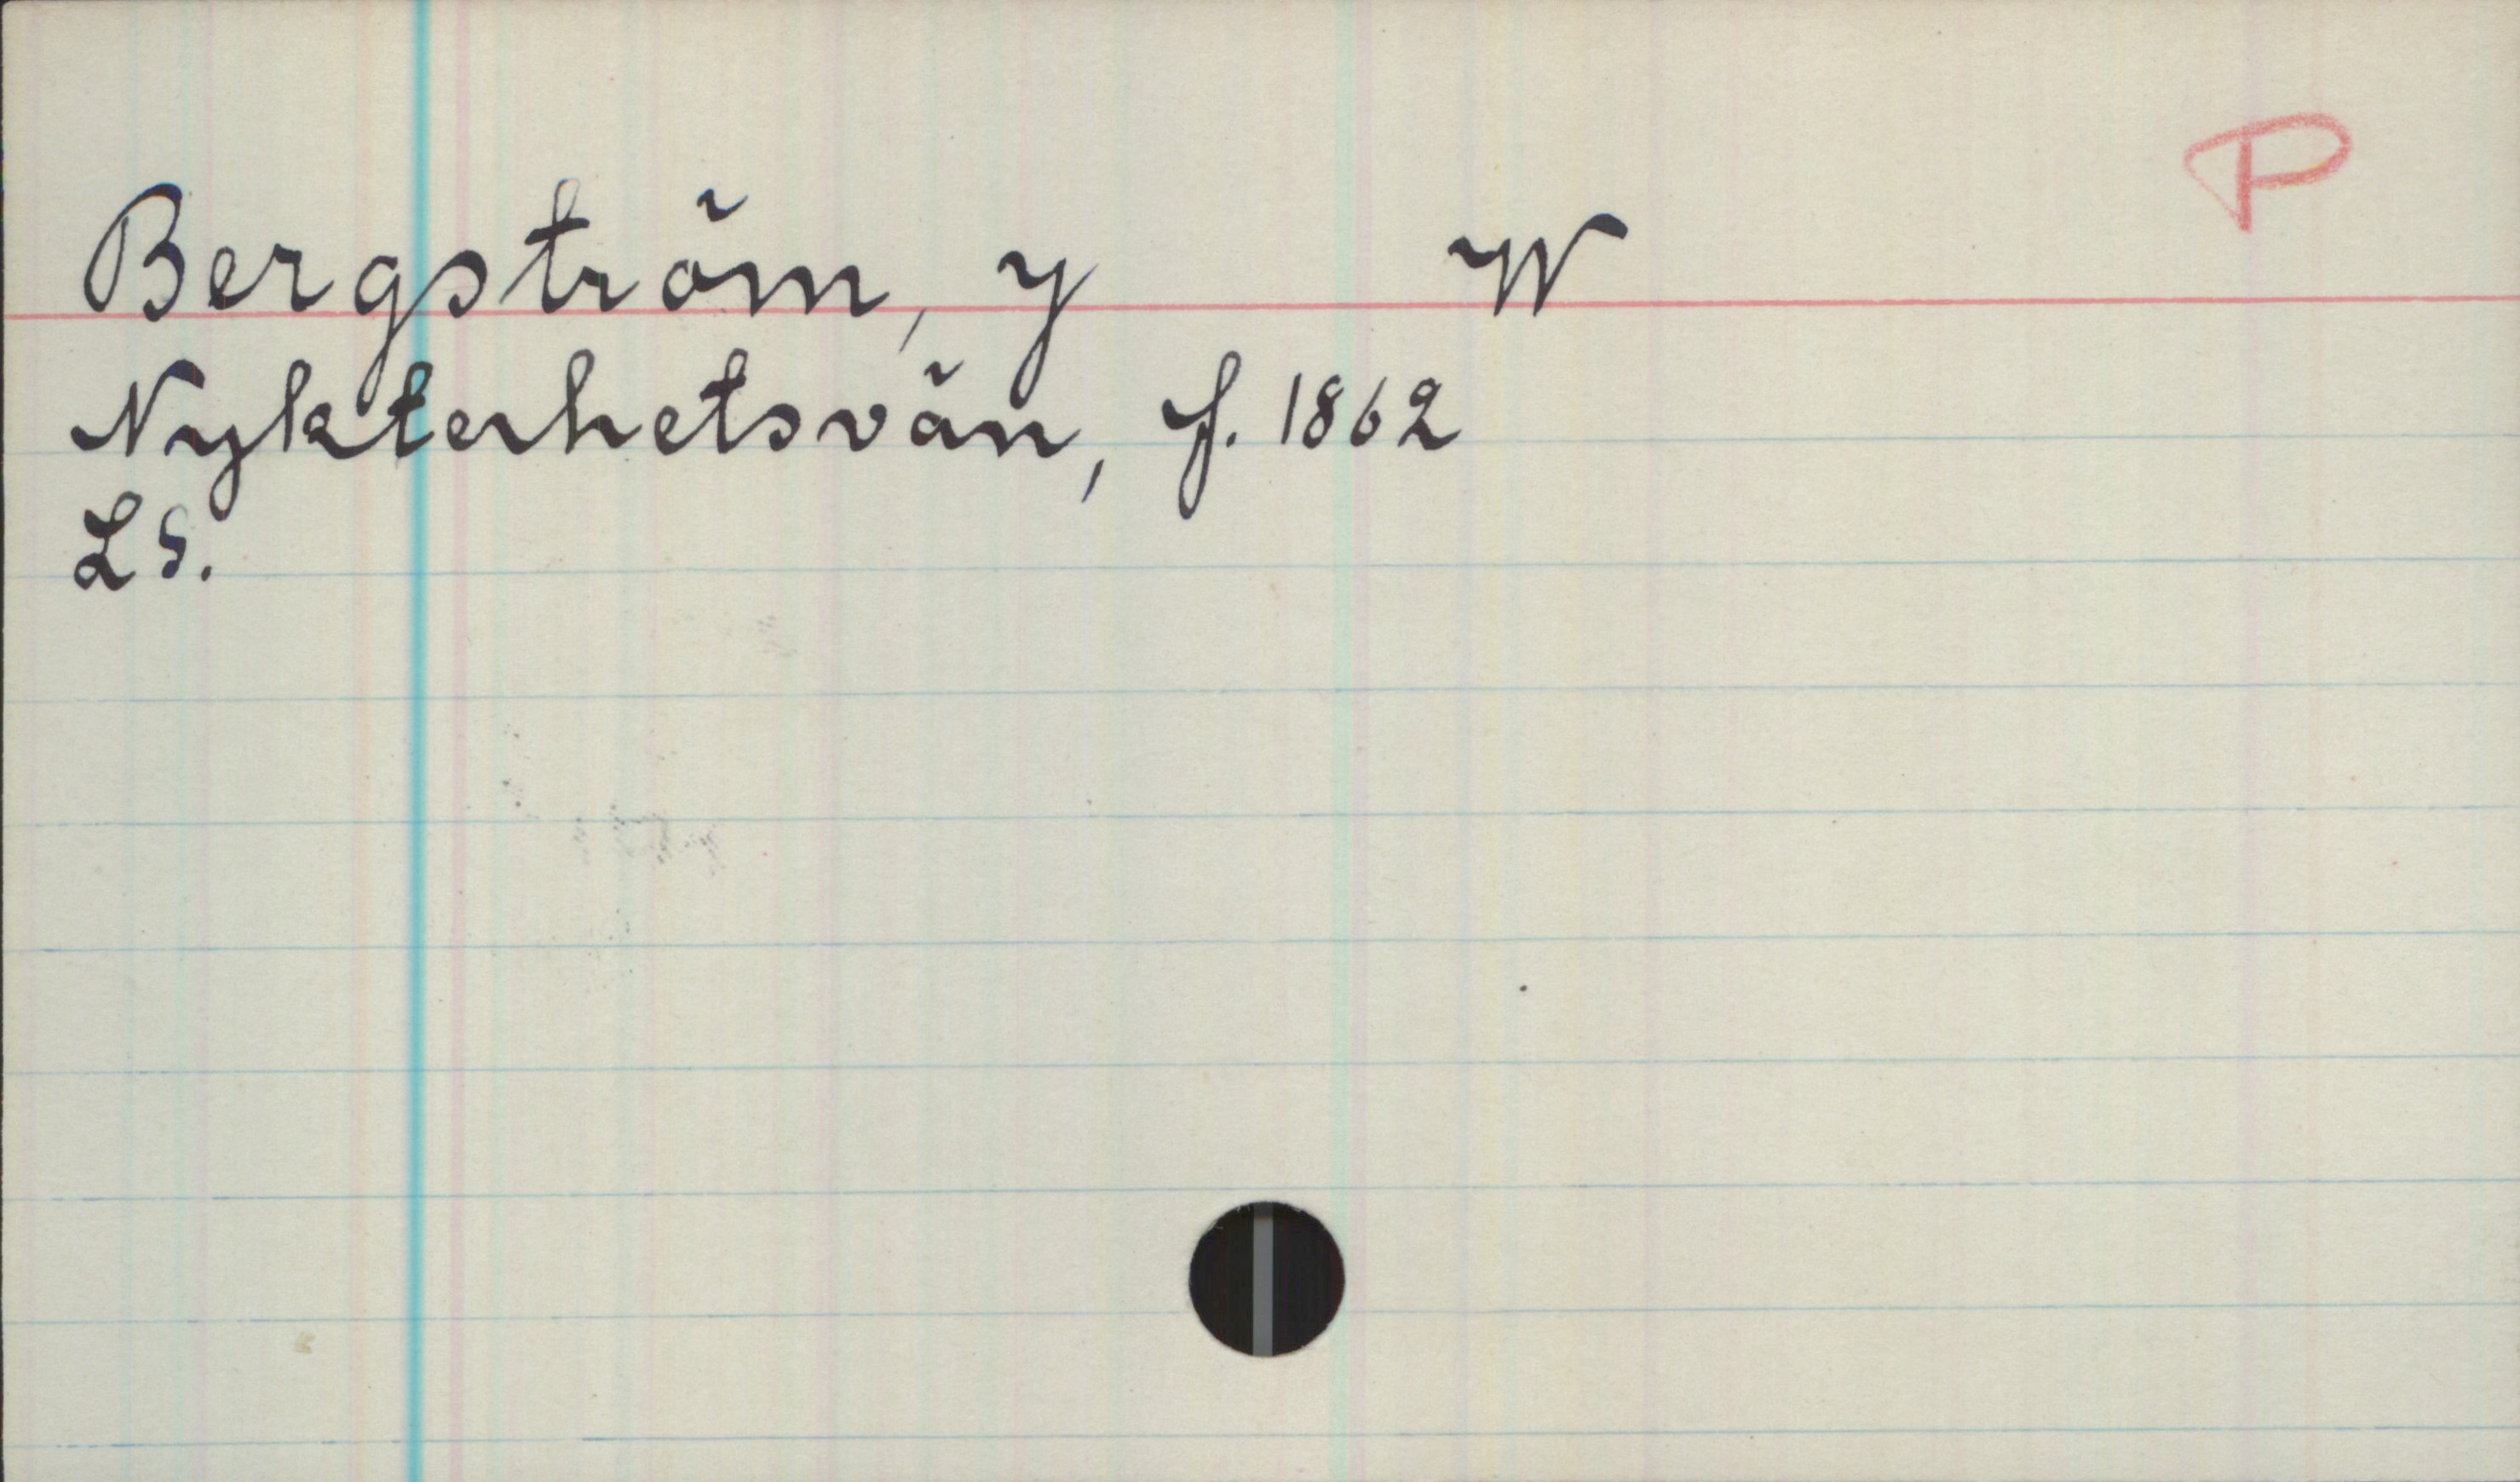 P
Bergström, y W
Nykterhetsvän, f. 1862
LS.